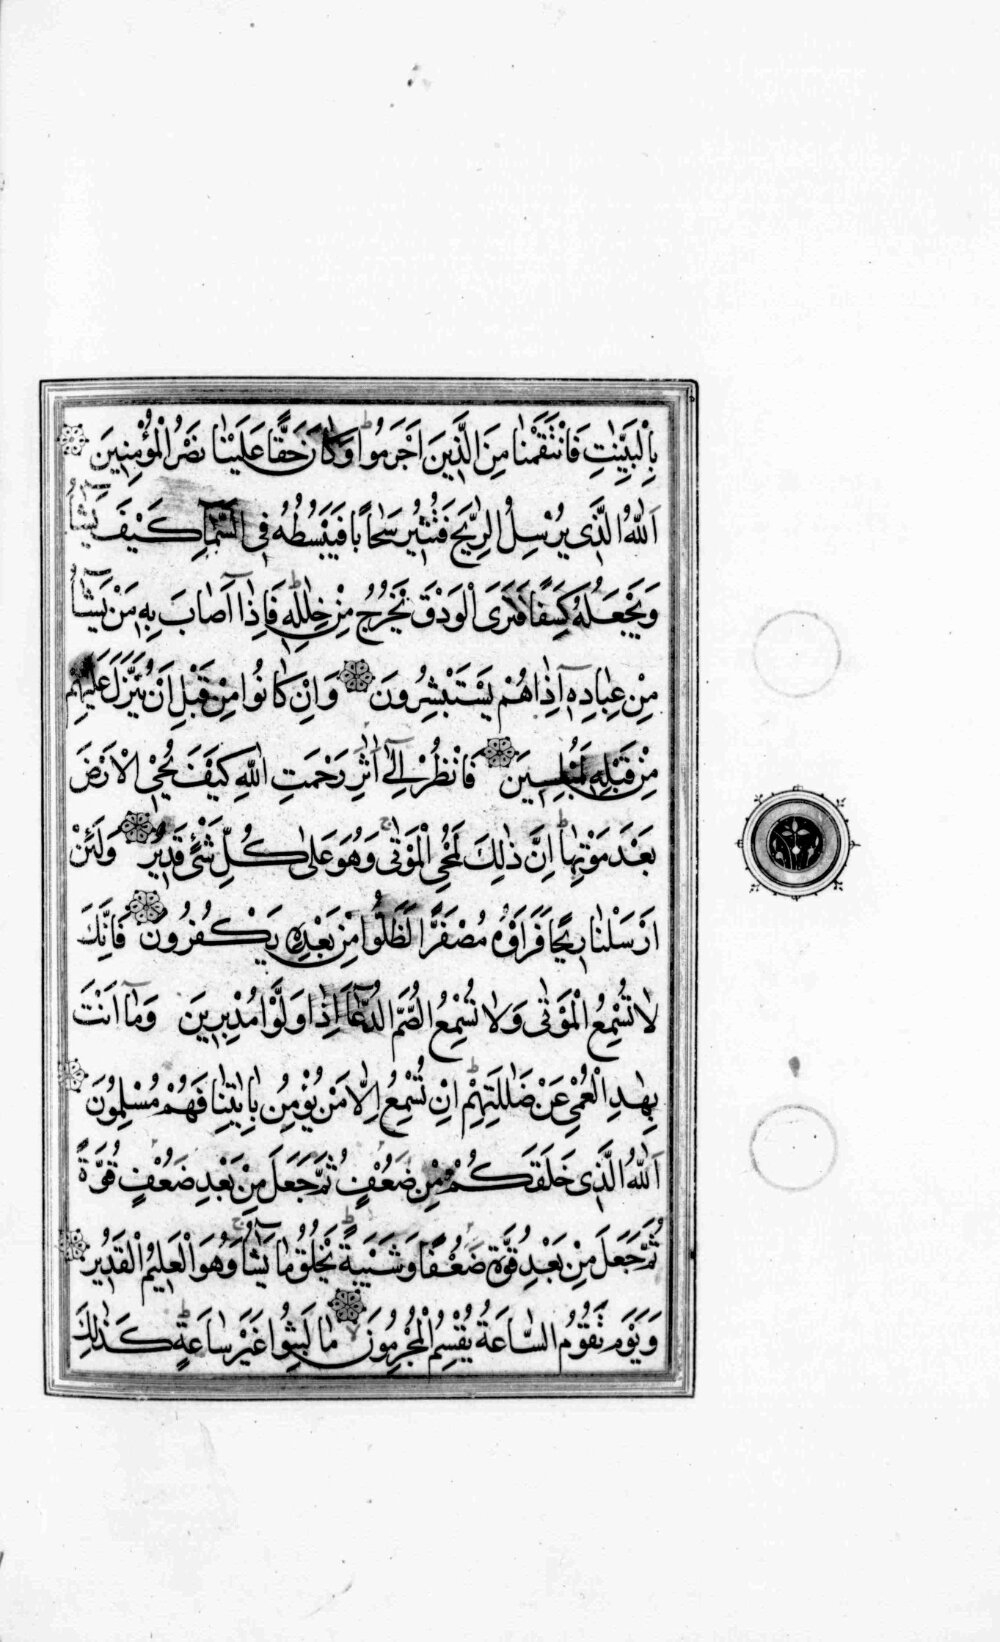 بِالْبَيِّنٰتِ فَانْتَقَمْنٰا مِنَ الَّذِينَ اَجْرَمُوا وَكٰانَ حَقًّا عَلَيْنٰا نَصْرُ الْمُؤْمِنِينَ
اَللّٰهُ الَّذِى يُرْسِلُ الرِّيٰحَ فَتُثِيرُ سَحٰابًا فَيَبْسُطُهُ فِى السَّمٰآءِ كَيْفَ يَشٰآءُ
وَيَجْعَلُهُ كِسَفًا فَتَرَى الْوَدْقَ يَخْرُجُ مِنْ خِلٰلِهِ فَاِذٰٓا اَصٰابَ بِهِ مَنْ يَشٰآءُ
مِنْ عِبٰادِهِ اِذٰا هُمْ يَسْتَبْشِرُونَ وَاِنْ كٰانُوا مِنْ قَبْلِ اَنْ يُنَزَّلَ عَلَيْهِمْ
مِنْ قَبْلِهِ لَمُبْلِسِينَ فَانْظُرْ اِلٰٓى اٰثٰرِ رَحْمَتِ اللّٰهِ كَيْفَ يُحْىِ الْاَرْضَ
بَعْدَ مَوْتِهٰا اِنَّ ذٰلِكَ لَمُحْىِ الْمَوْتٰى وَهُوَ عَلٰى كُلِّ شَىْءٍ قَدِيرٌ وَلَئِنْ
اَرْسَلْنٰا رِيحًا فَرَاَوْهُ مُصْفَرًّا لَظَلُّوا مِنْ بَعْدِهِ يَكْفُرُونَ فَاِنَّكَ
لٰا تُسْمِعُ الْمَوْتٰى وَلٰا تُسْمِعُ الصُّمَّ الدُّعٰآءَ اِذٰا وَلَّوْا مُدْبِرِينَ وَمٰٓا اَنْتَ
بِهٰدِ الْعُمْىِ عَنْ ضَلٰلَتِهِمْ اِنْ تُسْمِعُ اِلّٰا مَنْ يُؤْمِنُ بِاٰيٰتِنٰا فَهُمْ مُسْلِمُونَ
اَللّٰهُ الَّذِى خَلَقَكُمْ مِنْ ضَعْفٍ ثُمَّ جَعَلَ مِنْ بَعْدِ ضَعْفٍ قُوَّةً
ثُمَّ جَعَلَ مِنْ بَعْدِ قُوَّةٍ ضَعْفًا وَشَيْبَةً يَخْلُقُ مٰا يَشٰآءُ وَهُوَ الْعَلِيمُ الْقَدِيرُ
وَيَوْمَ تَقُومُ السّٰاعَةُ يُقْسِمُ الْمُجْرِمُونَ مٰا لَبِثُوا غَيْرَ سٰاعَةٍ كَذٰلِكَ